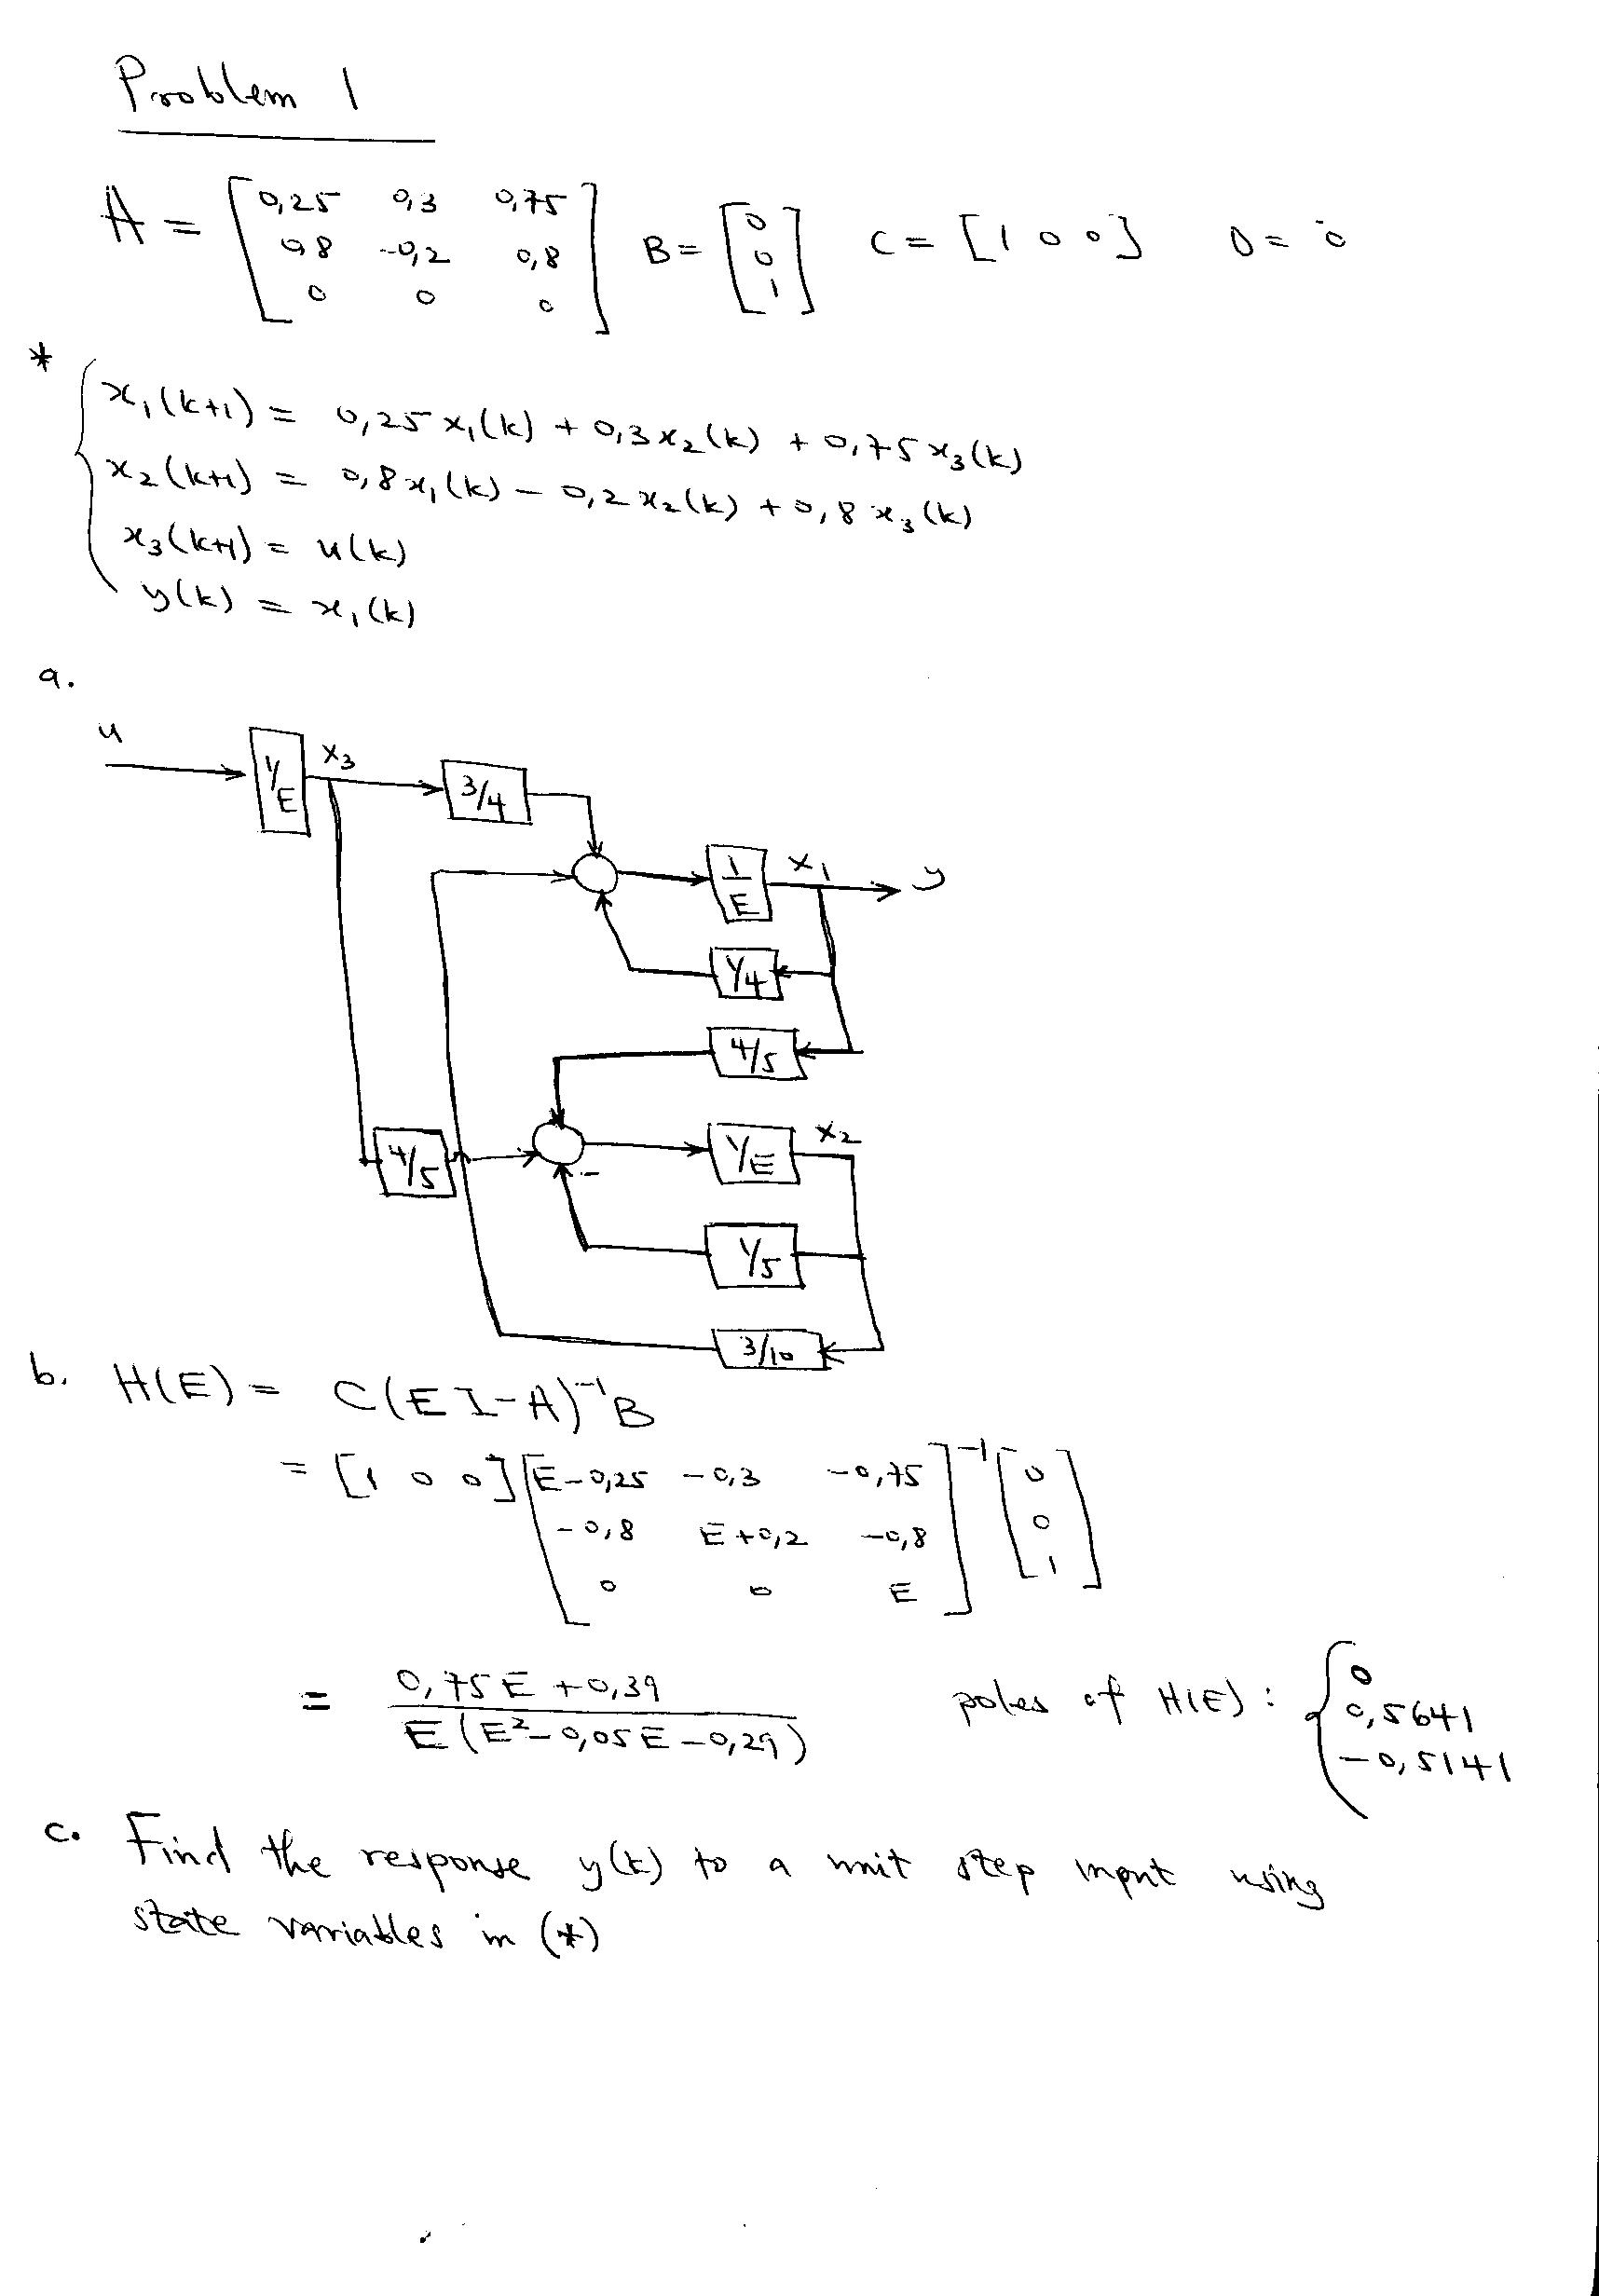 Problem 1
A = [0,25 0,3 0,75
0,8 -0,2 0,8
0 0 0] B = [0 0 1] C = [1 0 0] D = 0
*
x₁(k+1) = 0,25 x₁(k) + 0,3 x₂(k) + 0,75 x₃(k)
x₂(k+1) = 0,8 x₁(k) - 0,2 x₂(k) + 0,8 x₃(k)
x₃(k+1) = u(k)
y(k) = x₁(k)
a.
u 1/E x₃ 3/4
1/E x₁ y
1/4
4/5
4/5 - 1/E x₂
1/5
3/10
b. H(E) = C(E I - A)⁻¹B
= [1 0 0] [E-0,25 -0,3 -0,75
-0,8 E+0,2 -0,8
0 0 E]⁻¹ [0 0 1]
= (0,75E + 0,39) / (E(E² - 0,05E - 0,29)) poles of H(E): { 0
0,5641
-0,5141
c. Find the response y(k) to a unit step input using
state variables in (*)